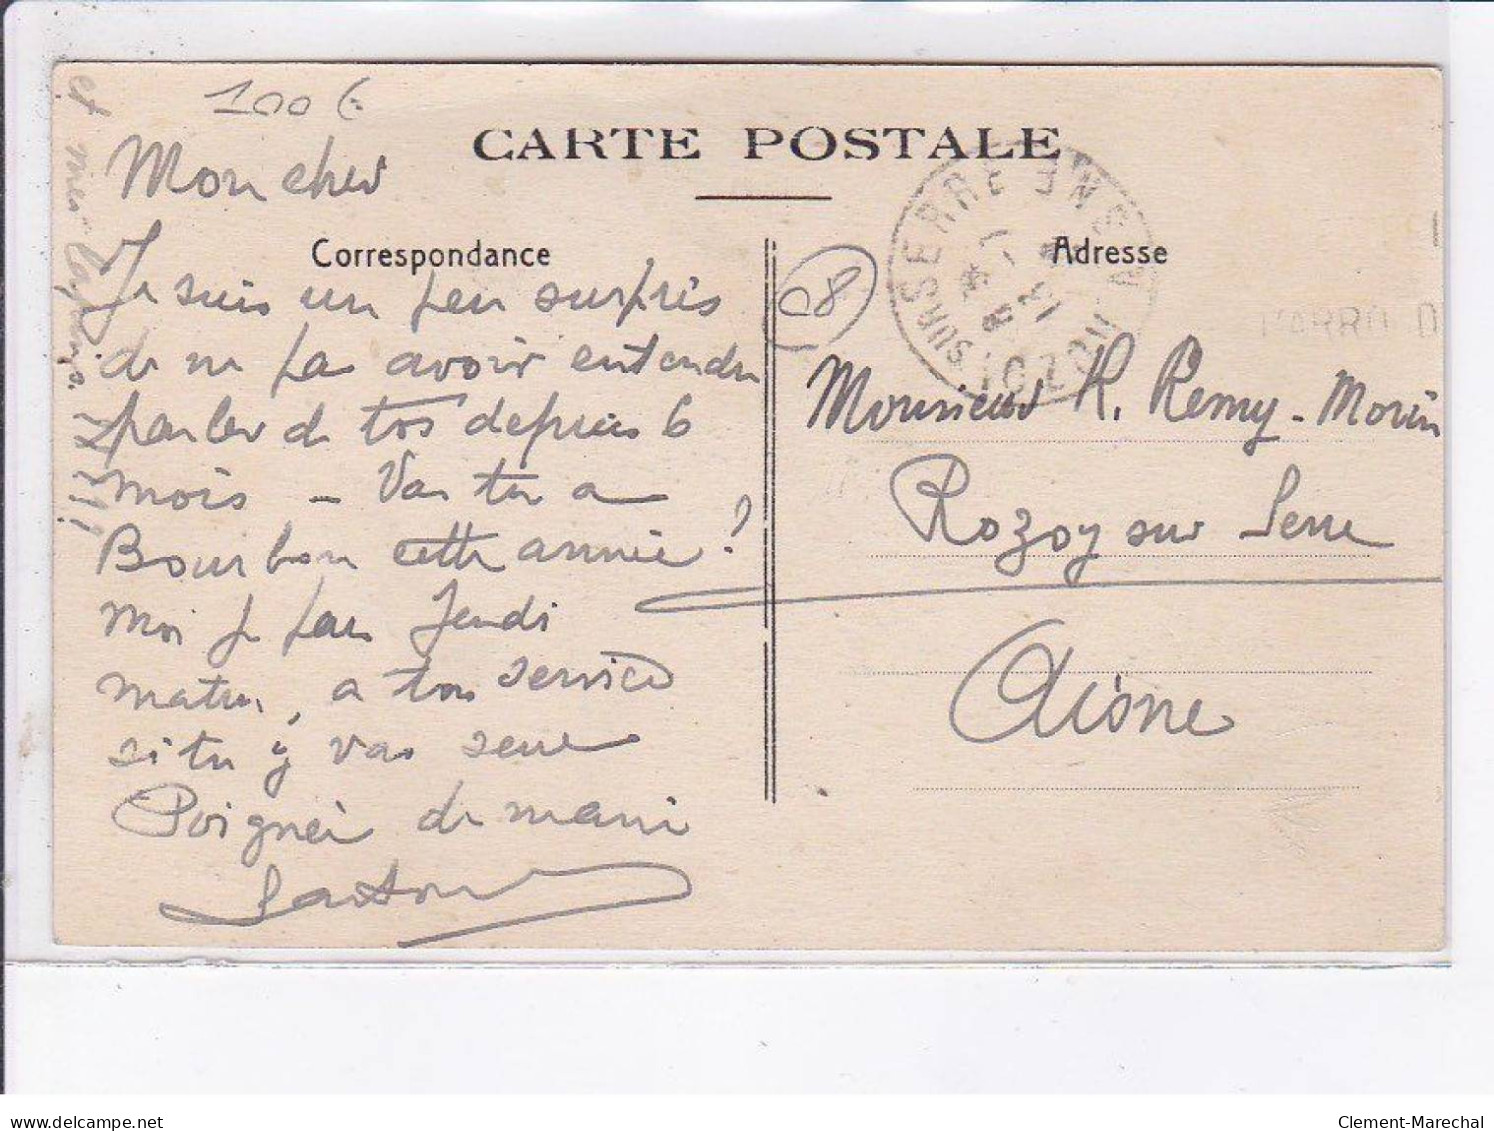 100 €
CARTE POSTALE
Correspondance
Adresse
Mon cher
Je suis un peu surpris
de ne pas avoir entendu
parler de toi depuis 6
mois - Vas tu a
Bourbon cette année ?
Moi je pars Jeudi
matin, a ton service
si tu y vas
Poignée de main
et mes lapins
!!!
08
Monsieur R. Remy-Morin
Rozoy sur Serre
Aisne
ROZOY SUR SERRE AISNE
delcampe.net
Clement-Marechal